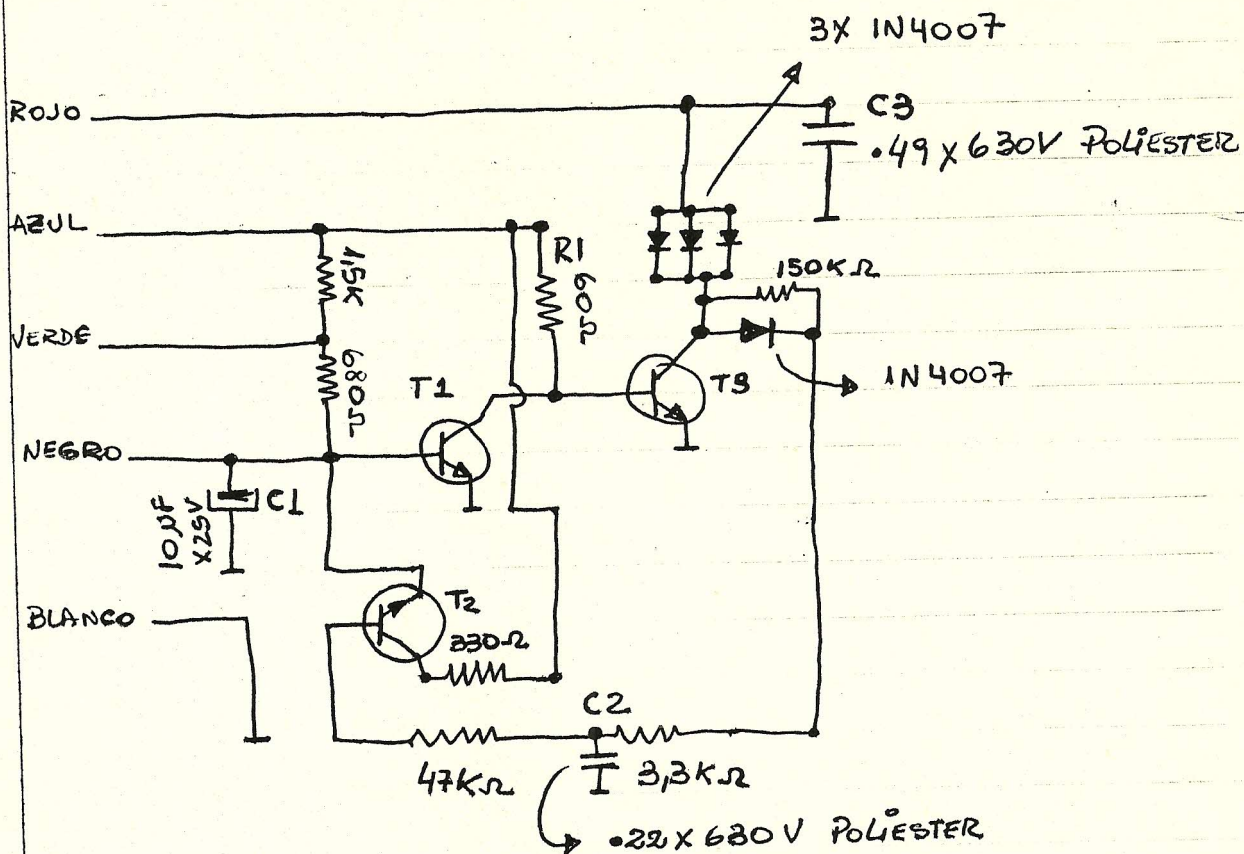 3X 1N4007
ROJO
C3
.49 X 630V POLiESTER
AZUL
1,5K
R1
60Ω
150KΩ
VERDE
680Ω
T1
T3
1N4007
NEGRO
C1
10µF
X25V
BLANCO
T2
330Ω
C2
47KΩ
3,3KΩ
.22 X 630V POLiESTER